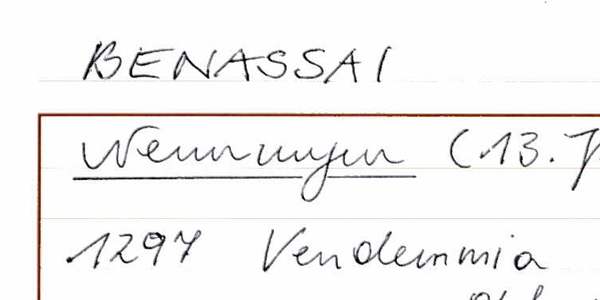 BENASSAI
Nennungen (13. J
1297 Vendemmia